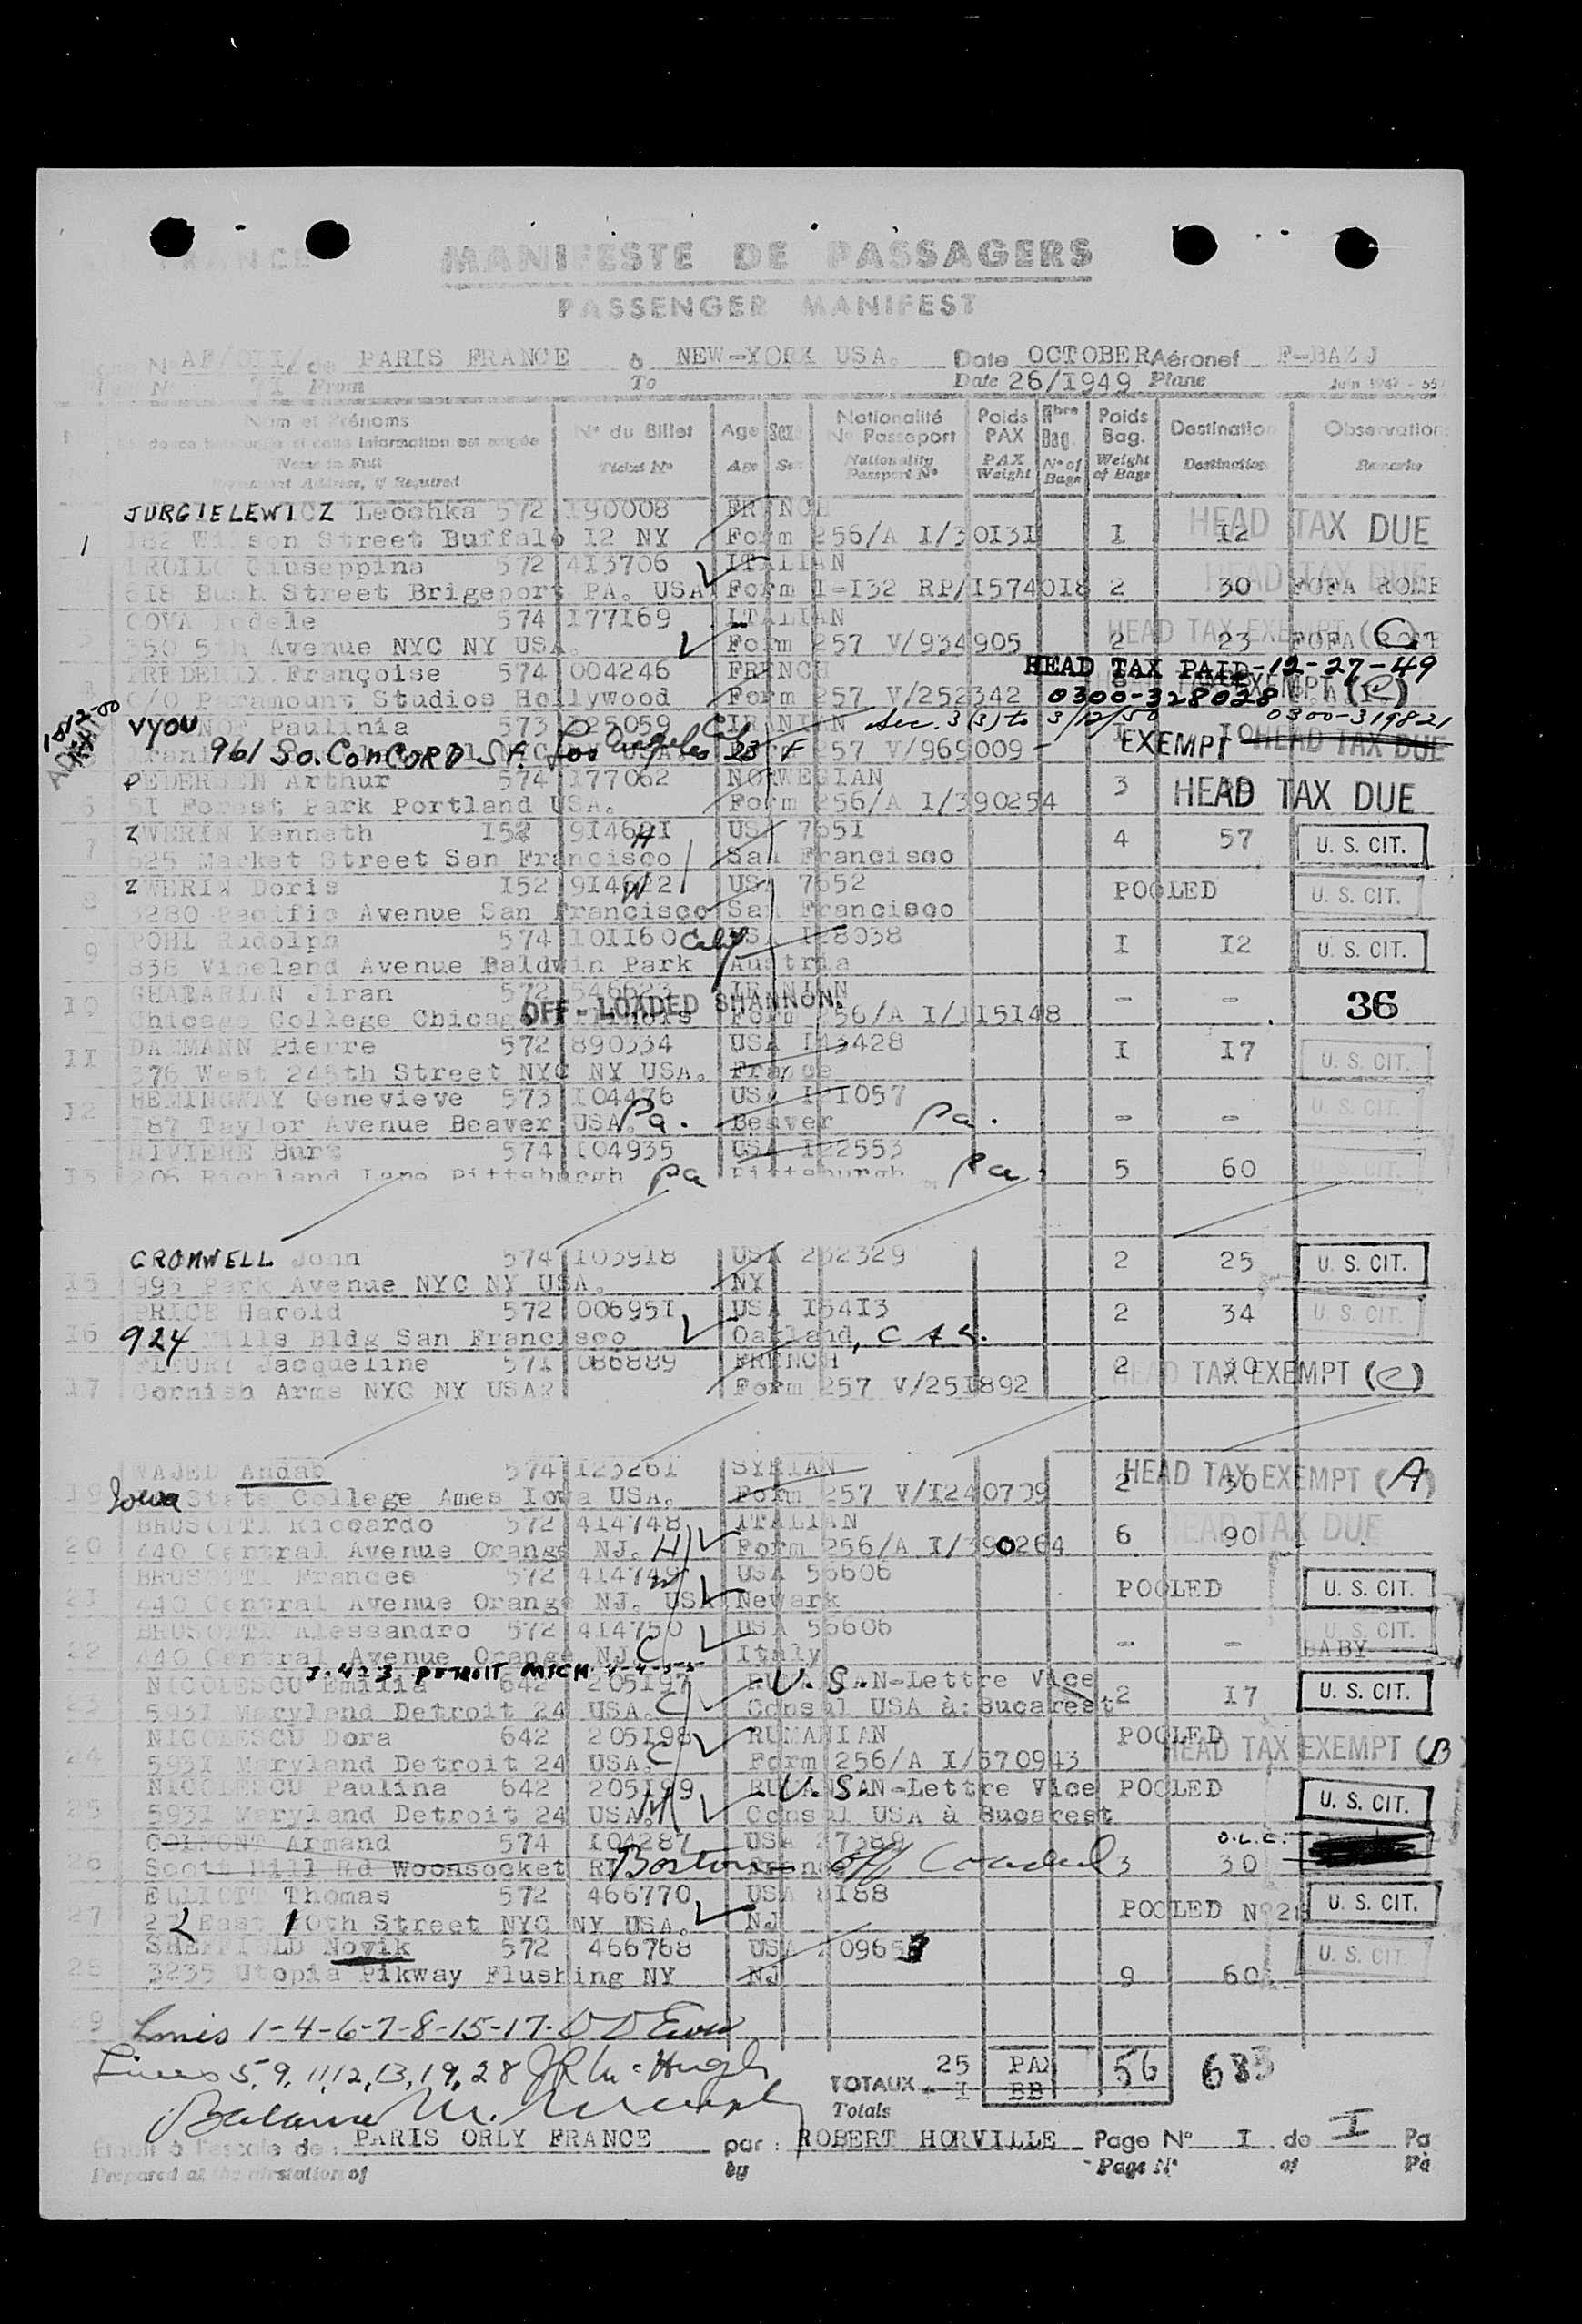 MANIFESTE DE PASSAGERS
PASSENGER MANIFEST
PARIS FRANCE à NEW-YORK USA. Date OCTOBER Aéronef F-BAZJ
From To Date 26/I949 Plane
Nom et Prénoms N° du Billet Age Sexe Nationalité Poids Nbre Poids Destination Observation
N° Passeport PAX Bag. Bag.
Name in Full Ticket N° Age Sex Nationality PAX N° of Weight Destination Remarks
Permanent Address, if Required Passport N° Weight Bags of Bags
JURGIELEWICZ Leochka 572 190008 FRENCH HEAD TAX DUE
1 182 Wilson Street Buffalo I2 NY Form 256/A I/30I3I I I2
Giuseppina 572 413706 ITALIAN HEAD TAX DUE
618 Bush Street Brigeport PA. USA Form I-I32 RP/I5740I8 2 30 FOFA ROME
COVA Fedele 574 I77I69 ITALIAN HEAD TAX EXEMPT (C)
350 5th Avenue NYC NY USA. Form 257 V/934905 2 23 FOFA
FREDERIX Françoise 574 004246 FRENCH HEAD TAX PAID-12-27-49
C/O Paramount Studios Hollywood Form 257 V/252342 0300-328028 EXEMPT (C)
ADMIT
VYOU Paulinia 573 I25059 IRANIAN Sec. 3(3) to 3/12/50 0300-319821
961 So. CONCORD St. Los Angeles 23 Cal F 257 V/969009 - EXEMPT HEAD TAX DUE
PEDERSEN Arthur 574 I77062 NORWEGIAN
6 5I Forest Park Portland USA. Form 256/A I/390254 3 HEAD TAX DUE
ZWERIN Kenneth I52 9I462I H USA 765I
7 625 Market Street San Francisco San Francisco 4 57 U. S. CIT.
ZWERIN Doris I52 9I4622 W USA 7652
8 3280 Pacific Avenue San Francisco San Francisco POOLED U. S. CIT.
POHL Rudolph 574 I0II60 Calif USA I28038
9 838 Vineland Avenue Baldwin Park Austria I I2 U. S. CIT.
GHAZARIAN Jiran 572 546623 IRANIAN
OFF-LOADED SHANNON.
10 Chicago College Chicago Illinois Form 256/A I/II5I48 - - 36
DAMMANN Pierre 572 890334 USA I43428
11 376 West 245th Street NYC NY USA. France I I7 U. S. CIT.
HEMINGWAY Genevieve 573 I04476 USA I2I057
12 I87 Taylor Avenue Beaver USA. Pa. Beaver Pa. - - U. S. CIT.
RIVIERE 574 I04935 USA I22553
13 206 Richland Lane Pittsburgh Pa Pittsburgh Pa. 5 60 U. S. CIT.
CROMWELL John 574 I03918 USA 232329
15 993 Park Avenue NYC NY USA. NY 2 25 U. S. CIT.
PRICE Harold 572 00695I USA I54I3
16 924 Mills Bldg San Francisco Oakland, CAL. 2 34 U. S. CIT.
FLEURY Jacqueline 571 086889 FRENCH
17 Cornish Arms NYC NY USA. Form 257 V/25I892 2 HEAD TAX EXEMPT (C)
WAJED Andab 574 I2326I SYRIAN
19 Iowa State College Ames Iowa USA. Form 257 V/I240709 2 30 HEAD TAX EXEMPT (A)
BRUSOTTI Riccardo 572 4I4748 ITALIAN
20 440 Central Avenue Orange NJ. H Form 256/A I/390264 6 90 HEAD TAX DUE
BRUSOTTI Frances 572 4I4749 W USA 56606
21 440 Central Avenue Orange NJ. USA Newark POOLED U. S. CIT.
BRUSOTTI Alessandro 572 4I4750 USA 56606 U. S. CIT.
22 440 Central Avenue Orange NJ. C Italy - - BABY
DETROIT MICH.
NICOLESCU Emilia 642 205I97 U.S. RUMANIAN-Lettre Vice
23 593I Maryland Detroit 24 USA. C Consul USA à: Bucarest 2 I7 U. S. CIT.
NICOLESCU Dora 642 205I98 RUMANIAN POOLED
24 593I Maryland Detroit 24 USA. C Form 256/A I/570943 HEAD TAX EXEMPT (B)
NICOLESCU Paulina 642 205I99 U.S. RUMANIAN-Lettre Vice POOLED
25 593I Maryland Detroit 24 USA. M Consul USA à Bucarest U. S. CIT.
Armand 574 I04287 USA 27389 O.L.C.
26 Scott Hill Rd Woonsocket RI Boston Off Loaded 3 30
ELLIOTT Thomas 572 466770 USA 8I88
27 2 East 10th Street NYC NY USA. NJ POOLED N°28 U. S. CIT.
SHEFFIELD Novik 572 466768 USA 20965
28 3235 Utopia Pikway Flushing NY NJ 9 60 U. S. CIT.
29 Lines 1-4-6-7-8-15-17.
Lines 5, 9, 11, 12, 13, 19, 28 J R McHugh
Balance M. Murphy
TOTAUX 25 PAX 56 683
Totals I BB
Etabli à l'escale de: PARIS ORLY FRANCE par: ROBERT HORVILLE Page N° I de I Pa
Prepared at the airstation of by Page N° of Pa